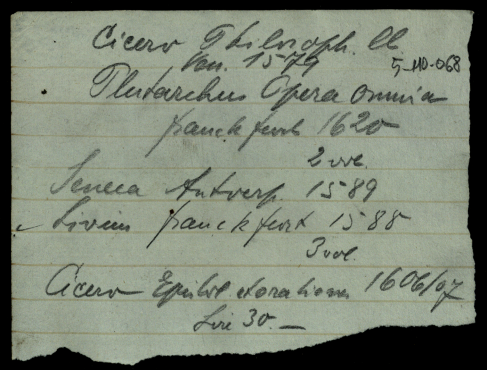 Cicero Philosoph. ll
Ven. 1579
5-MD-068
Plutarchus Opera omnia
franckfurt 1620
2 vol.
Seneca Antwerp. 1589
Livius franckfurt 1588
3 vol.
Cicero Epistol et orationes 1606/07
Lire 30.—